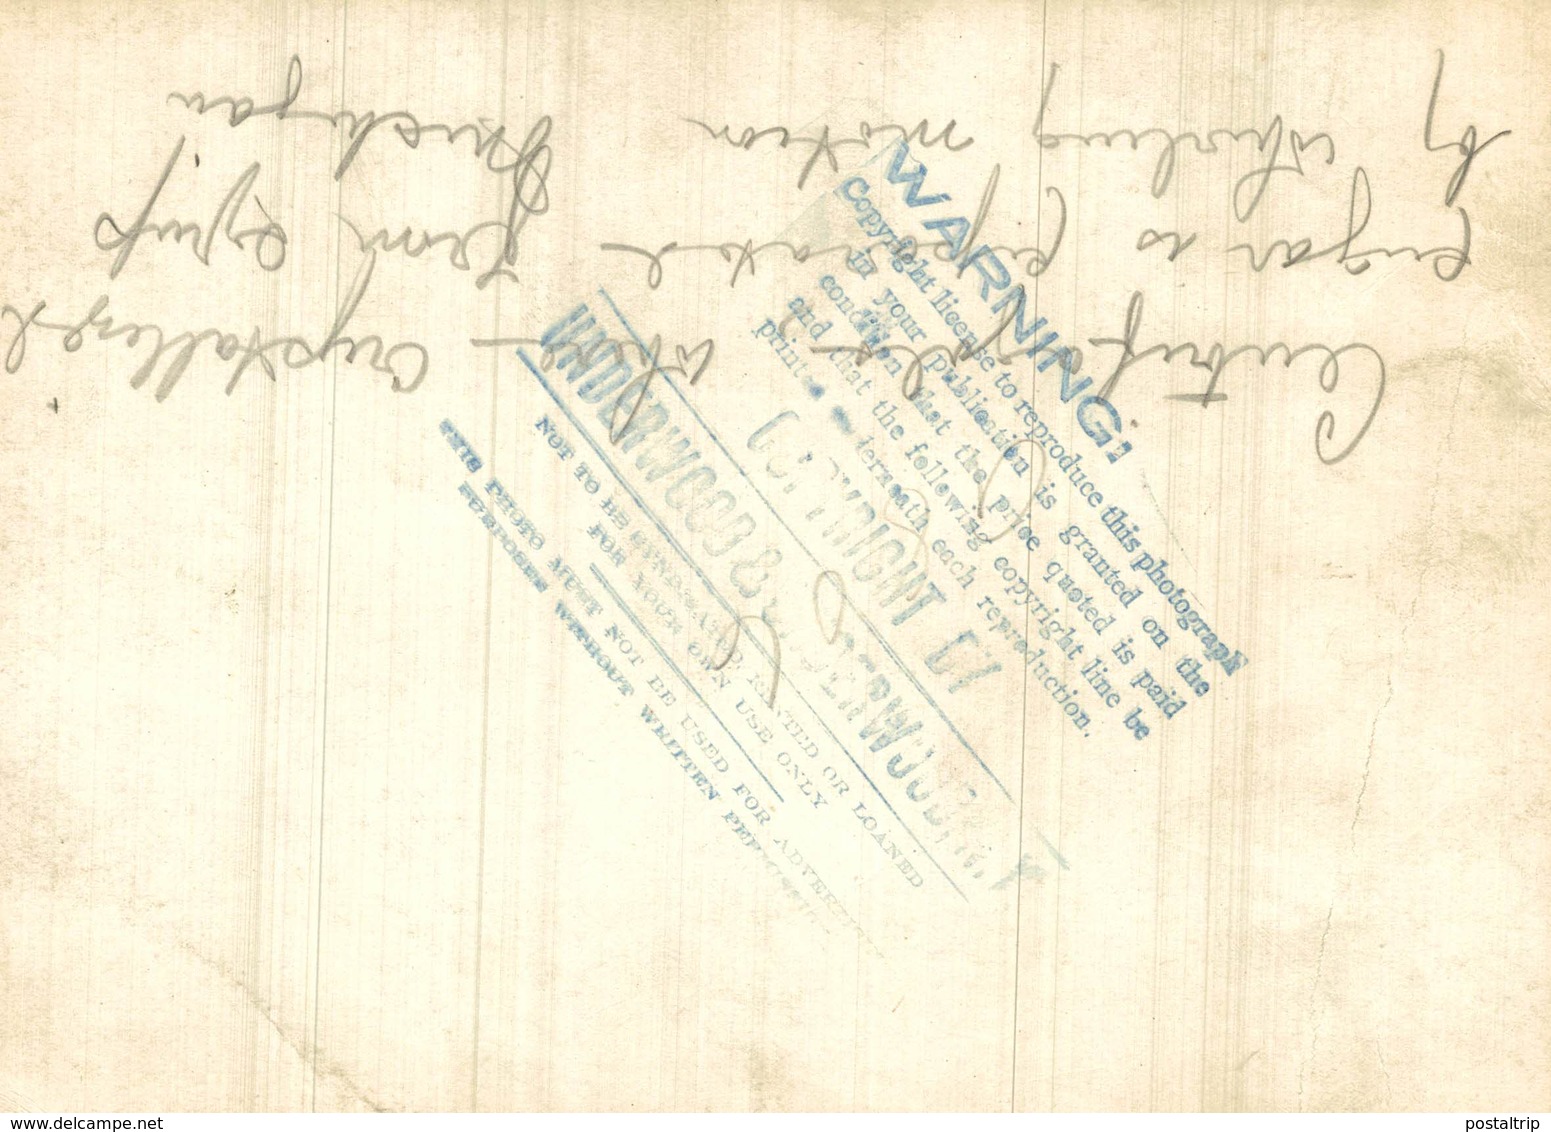 Centrifugal - Where Crystallized
sugar is separated from syrup
by whirling motion Michigan
WARNING:
Copyright license to reproduce this photograph
in your publication is granted on the
condition that the price quoted is paid
and that the following copyright line be
printed underneath each reproduction.
COPYRIGHT BY
UNDERWOOD & UNDERWOOD, N.Y.
NOT TO BE SYNDICATED, RENTED OR LOANED
FOR YOUR OWN USE ONLY
THIS PHOTO MUST NOT BE USED FOR ADVERTISING
PURPOSES WITHOUT WRITTEN PERMISSION
www.delcampe.net
postaltrip